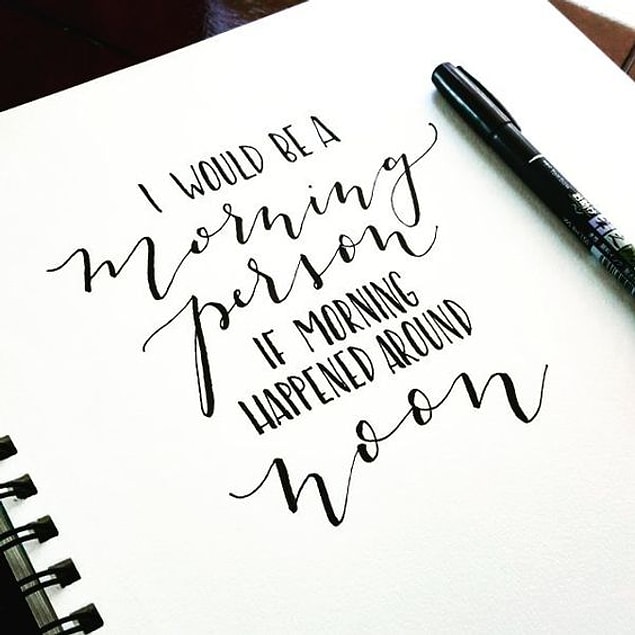 I WOULD BE A
morning
person
IF MORNING
HAPPENED AROUND
noon